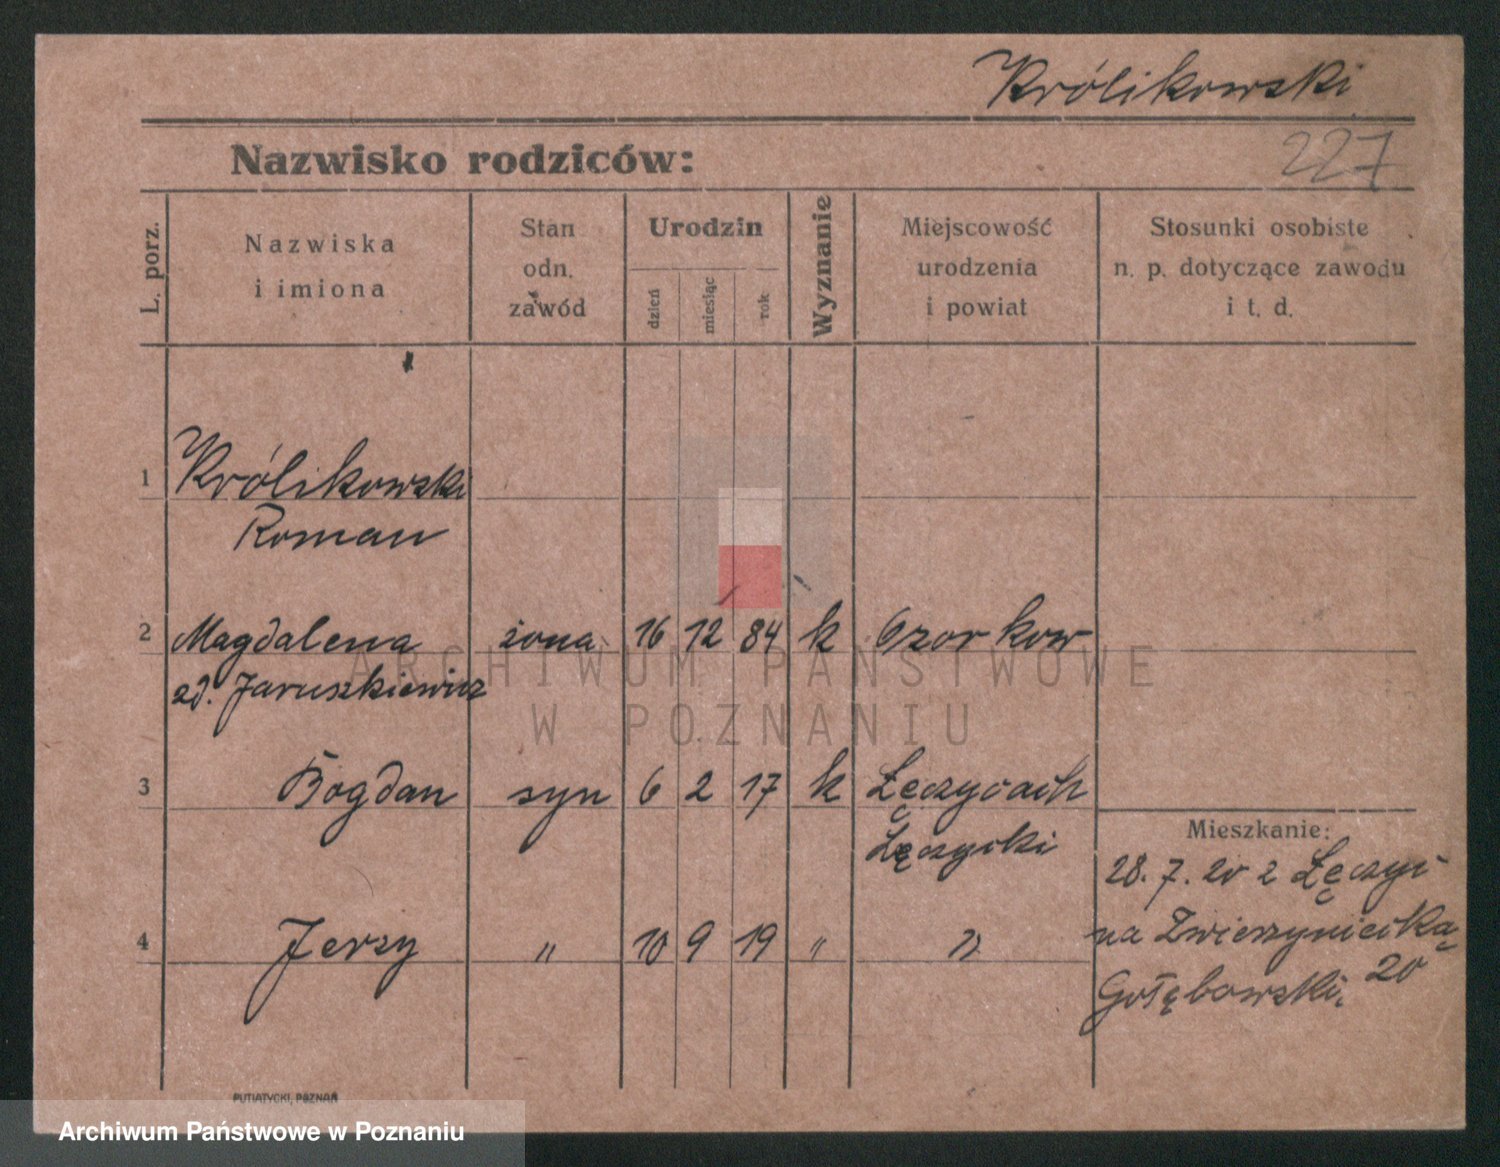 Królikowski
227
Nazwisko rodziców:
L. porz.
Nazwiska
i imiona
Stan
odn.
zawód
Urodzin
dzień
miesiąc
rok
Wyznanie
Miejscowość
urodzenia
i powiat
Stosunki osobiste
n. p. dotyczące zawodu
i t. d.
1 Królikowski
Roman
2 Magdalena żona 16 12 84 k Ozorkow
zd. Jaruszkiewicz
3 Bogdan syn 6 2 17 k Łęczycach
Łęczycki
4 Jerzy " 10 9 19 " "
Mieszkanie:
28. 7. 20 z Łęczyc
na Zwierzyniecką
20
Gołębowski
PUTIATYCKI, POZNAŃ
ARCHIWUM PAŃSTWOWE
W POZNANIU
Archiwum Państwowe w Poznaniu